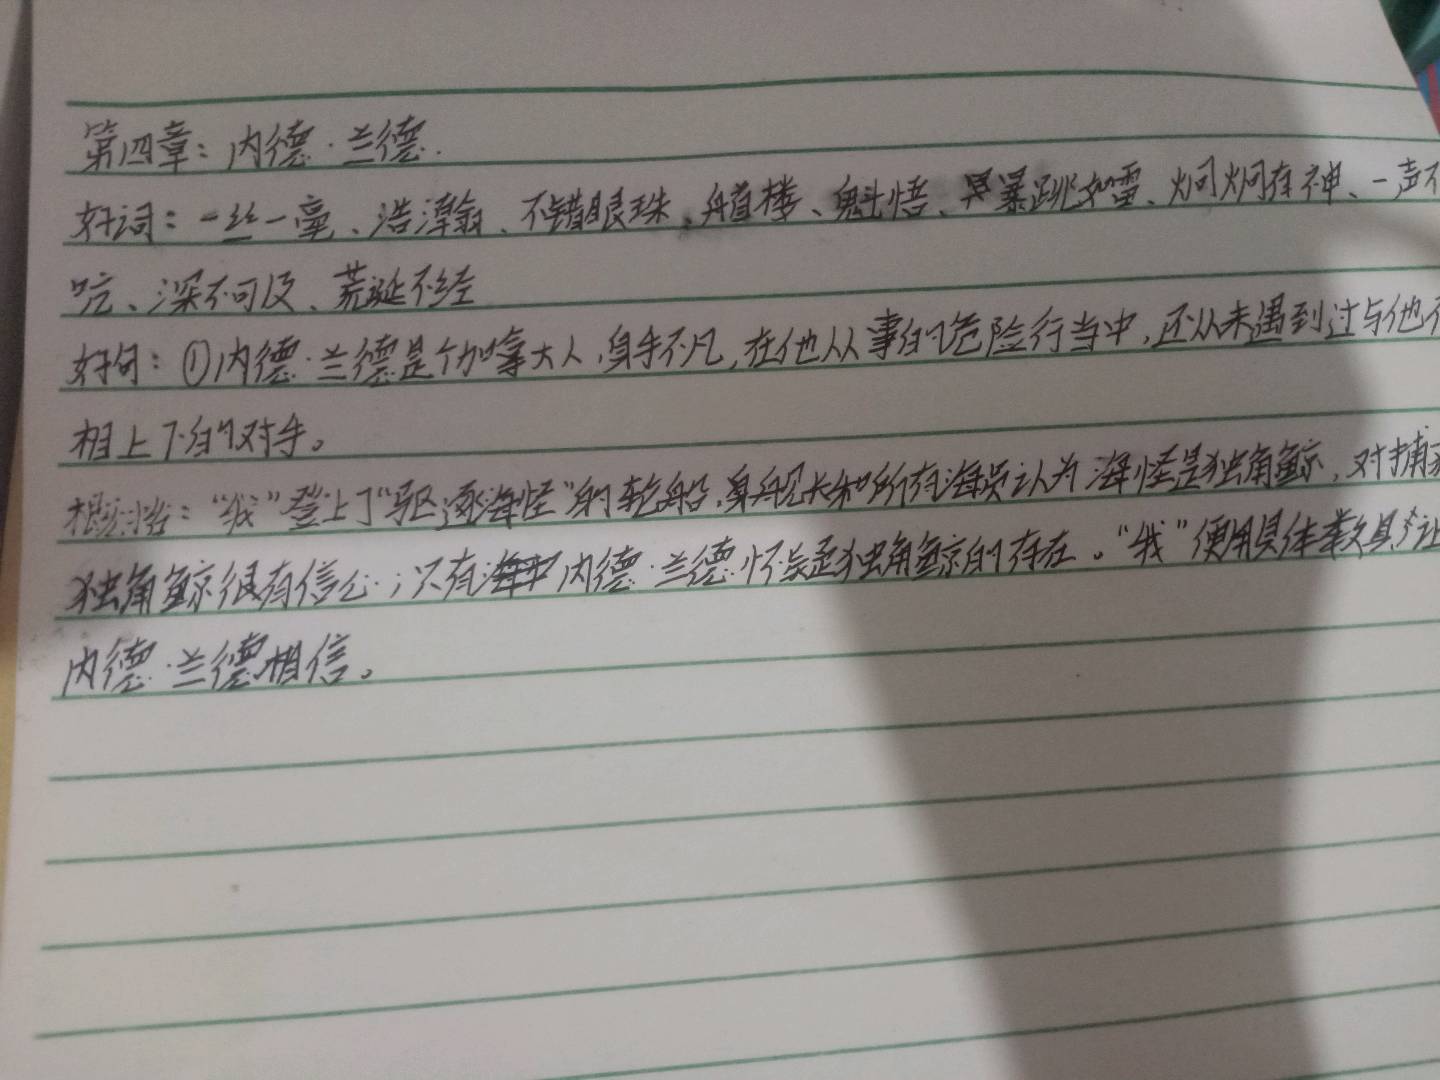 第四章：内德·兰德.
好词：一丝一毫、浩瀚、不错眼珠、艏楼、魁梧、暴跳如雷、炯炯有神、一声不
吭、深不可及、荒诞不经
好句：①内德·兰德是个加拿大人，身手不凡，在他从事的危险行当中，还从未遇到过与他不
相上下的对手。
概括：“我”登上了“驱逐海怪”的轮船，舰长和所有海员认为海怪是独角鲸，对捕
独角鲸很有信心；只有内德·兰德怀疑独角鲸的存在。“我”便用具体数具让
内德·兰德相信。